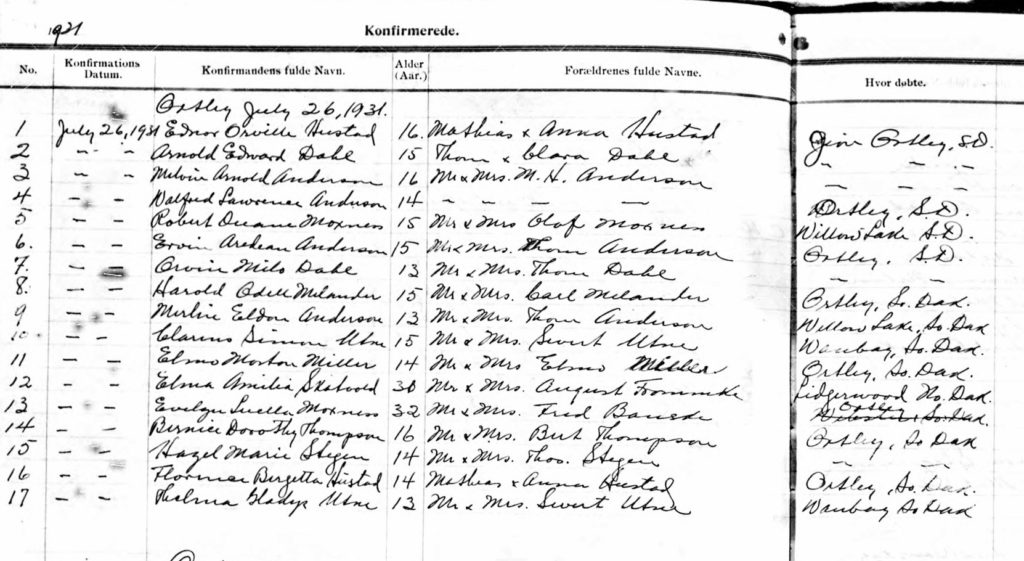 1931
Konfirmerede.
No. Konfirmations Datum. Konfirmandens fulde Navn. Alder (Aar.) Forældrenes fulde Navne. Hvor døbte.
Ortley July 26, 1931.
1 July 26, 1931 Ednor Orville Hustad 16. Mathias & Anna Hustad Zion Ortley, S.D.
2 - - Arnold Edward Dahl 15 Thom & Clara Dahl - - -
3 - - Melvin Arnold Anderson 16 Mr & Mrs. M. H. Anderson - - -
4 - - Walfred Lawrence Anderson 14 - - - - Ortley, S.D.
5 - - Robert Duane Moxness 15 Mr & Mrs Olof Moxness Willow Lake S.D.
6. - - Ervin Anderson 15 Mr & Mrs. Thom Anderson Ortley, S.D.
7. - - Orvin Milo Dahl 13 Mr & Mrs. Thom Dahl - -
8. - - Harold Odell Melander 15 Mr & Mrs. Carl Melander Ortley, So. Dak.
9 - - Merlin Eldon Anderson 13 Mr & Mrs. Thom Anderson Willow Lake, So. Dak
10 - - Clarens Simon Utne 15 Mr & Mrs. Sivert Utne Waubay, So. Dak.
11 - - Elmo Morton Miller 14 Mr & Mrs Elmo Miller Ortley, So. Dak.
12 - - Elma Amilia Skatvold 30 Mr & Mrs. August Frommke Lidgerwood No. Dak.
13 - - Evelyn Luella Moxness 32 Mr & Mrs. Fred Ortley Webster, So. Dak.
14 - - Bernice Dorothy Thompson 16 Mr & Mrs. Bert Thompson Ortley, So Dak
15 - - Hazel Marie Stegen 14 Mr & Mrs. Thos. Stegen - - -
16 - - Florence Birgetta Hustad 14 Mathias & Anna Hustad Ortley, So. Dak.
17 - - Thelma Gladys Utne 13 Mr & Mrs. Sivert Utne Waubay So Dak